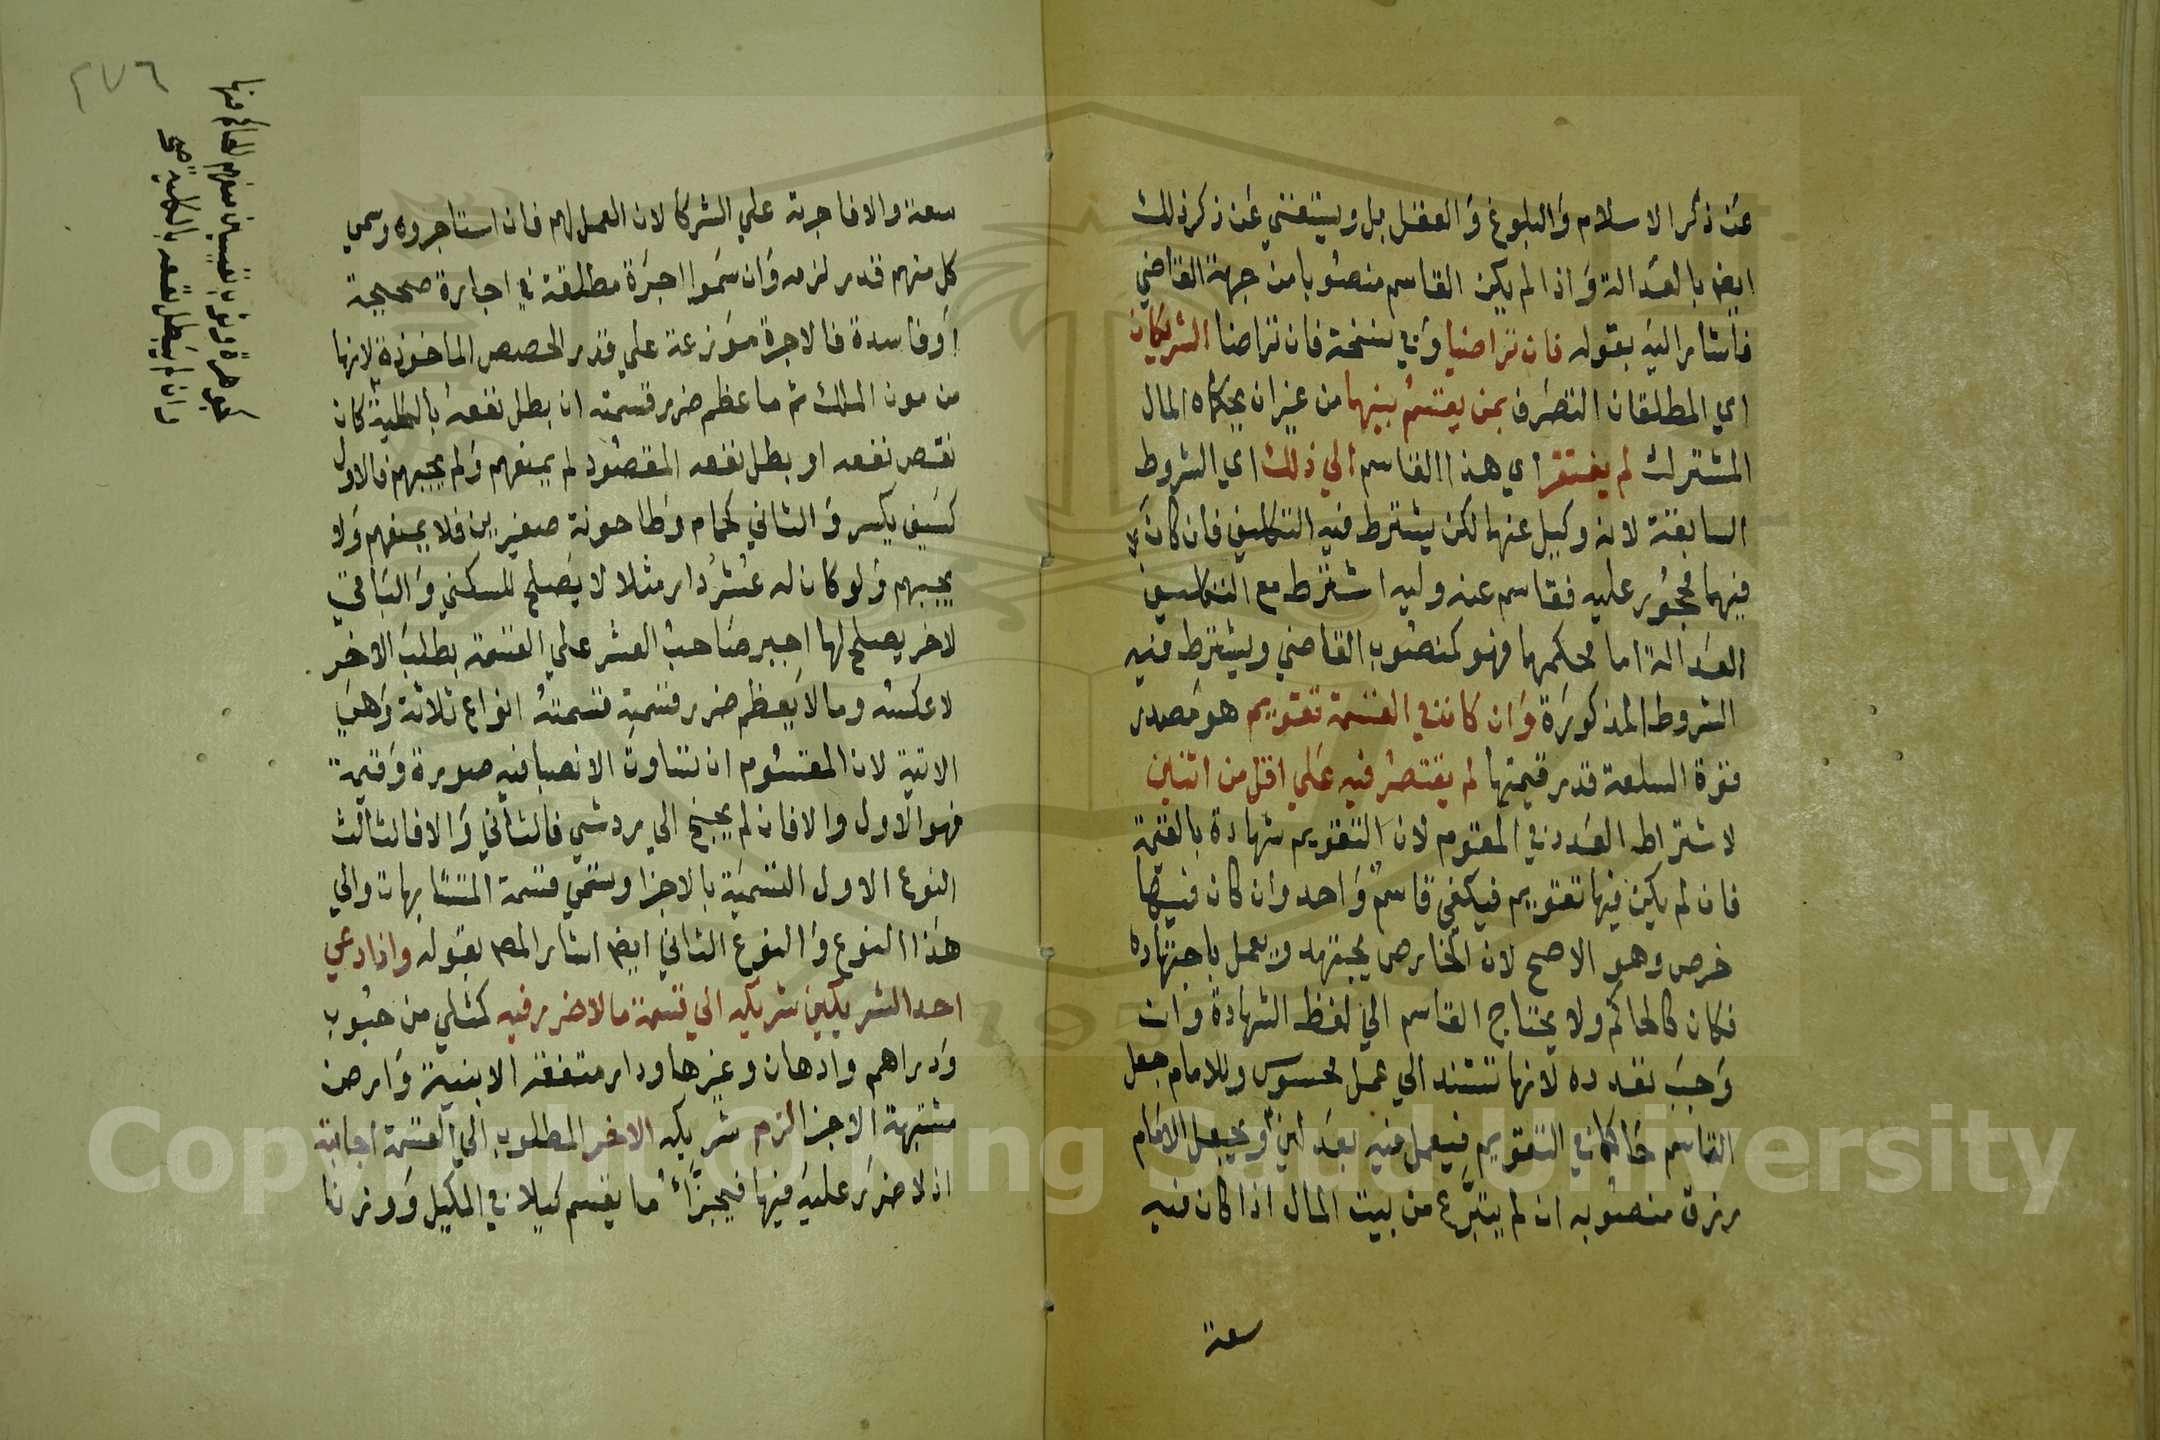 عن ذكر الاسلام والبلوغ والعقل بل ويستغني عن ذكر ذلك
ايض بالعدالة واذا لم يكن القاسم منصوبا من جهة القاضي
فاشار اليه بقوله فان تراضيا وفي نسخة فان تراضا الشريكان
اي المطلقان التصرف بمن يقسم بينهما من غير ان يحكماه المال
المشترك لم يفتقر اي هذا القاسم الي ذلك اي الشروط
السابقة لانه وكيل عنهما لكن يشترط فيه التكليف فان كان
فيهما محجور عليه فقاسم عنه وليه اشترط مع التكليف
العدالة اما محكمهما فهو كمنصوب القاضي ويشترط فيه
الشروط المذكورة وان كان في القسمة تقويم هو مصدر
قوم السلعة قدر قيمتها لم يقتصر فيه علي اقل من اثنين
لاشتراط العدد في المقوم لان التقويم شهادة بالقيمة
فان لم يكن فيها تقويم فيكفي قاسم واحد وان كان فيها
خرص وهو الاصح لان الخارص يجتهد ويعمل باجتهاده
فكان كالحاكم ولا يحتاج القاسم الي لفظ الشهادة وان
وجب تعدده لانها تستند الي عمل محسوس وللامام جعل
القاسم حاكما في التقويم فيعمل فيه بعدلين ويجعل الامام
رزق منصوبه ان لم يتبرع من بيت المال اذا كان فيه
سعة
٢٧٦
سعة والا فاجرته علي الشركا لان العمل لهم فان استاجروه وسمي
كل منهم قدر لزمه وان سموا اجرة مطلقة في اجارة صحيحة
او فاسدة فالاجرة موزعة علي قدر الحصص الماخوذة لانها
من مون الملك ثم ما عظم ضرر قسمته ان بطل نفعه بالكلية كان
نقص نفعه او بطل نفعه المقصود لم يمنعهم ولم يجبهم فالاول
كسيف يكسر والثاني كحمام وطاحونة صغيرين فلا يمنعهم ولا
يجيبهم ولو كان له عشر دار مثلا لا يصلح للسكني والباقي
لاخر يصلح لها اجبر صاحب العشر علي القسمة بطلب الاخر
لا عكسه وما لا يعظم ضرر قسمته قسمته انواع ثلاثة وهي
الاتية لان المقسوم ان تساوت الانصبا فيه صورة وقيمة
فهو الاول والا فان لم يحتج الي رد شي فالثاني والا فالثالث
النوع الاول القسمة بالاجزا وتسمي قسمة المتشابهات والي
هذا النوع والنوع الثاني ايض اشار المصـ بقوله واذا دعي
احد الشريكين شريكه الي قسمة ما لا ضرر فيه كمثلي من حبوب
ودراهم وادهان وغيرها ودار متفقة الابنية وارض
مشتبهة الاجزا لزم شريكه الاخر المطلوب الي القسمة اجابته
اذ لا ضرر عليه فيها فيجزأ ما يقسم كيلا في المكيل ووزنا
كجوهرة وثوب نفيسين منعهم الحاكم منها
وان لم يبطل نفعه بالكلية صح
Copyright © King Saud University